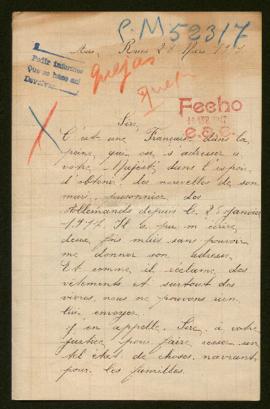 S.M 52317
Pedir Informes
que se hace así
quejas
Fecho
E.S.C.
Sire,
C'est une Française dans la
peine, qui ose s'adresser à
votre Majesté dans l'espoir
d'obtenir des nouvelles de son
mari, prisonnier des
Allemands depuis le 25 Janvier
1917. Il a pu m'écrire
deux fois mais sans pouvoir
me donner son adresse.
Et comme il réclame des
vêtements et surtout des
vivres, nous ne pouvons rien
lui envoyer.
J'en appelle, Sire, à votre
Justice pour faire cesser un
tel état de choses, navrant
pour les familles.